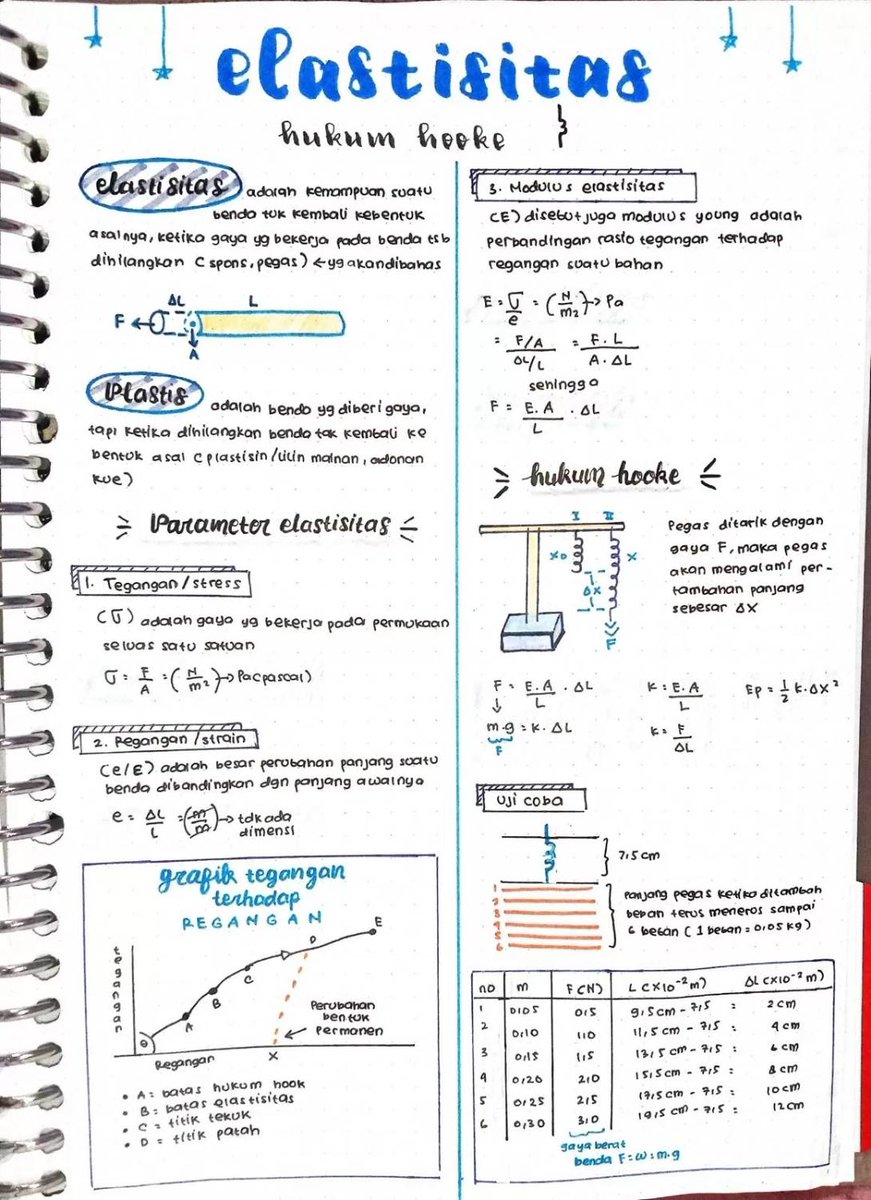 elastisitas
hukum hooke }
elastisitas adalah kemampuan suatu
benda tuk kembali kebentuk
asalnya, ketika gaya yg bekerja pada benda tsb
dihilangkan (spons, pegas) ← yg akan dibahas
ΔL L
F
A
Plastis adalah benda yg diberi gaya,
tapi ketika dihilangkan benda tak kembali ke
bentuk asal (plastisin/lilin mainan, adonan
kue)
Parameter elastisitas
1. Tegangan/stress
(σ) adalah gaya yg bekerja pada permukaan
seluas satu satuan
σ = F/A = (N/m²) → Pa (pascal)
2. Regangan/strain
(e/E) adalah besar perubahan panjang suatu
benda dibandingkan dgn panjang awalnya
e = ΔL/L = (m/m) → tdk ada
dimensi
grafik tegangan
terhadap
REGANGAN
tegangan
θ A B C D E
Perubahan
bentuk
permanen
Regangan X
• A = batas hukum hook
• B = batas elastisitas
• C = titik tekuk
• D = titik patah
3. Modulus elastisitas
(E) disebut juga modulus young adalah
perbandingan rasio tegangan terhadap
regangan suatu bahan
E = σ/e = (N/m2) → Pa
= F/A / ΔL/L = F.L / A.ΔL
sehingga
F = E.A/L . ΔL
hukum hooke
I II
X0 X
ΔX
F
Pegas ditarik dengan
gaya F, maka pegas
akan mengalami per-
tambahan panjang
sebesar ΔX
F = E.A/L . ΔL K = E.A/L Ep = 1/2 k.ΔX²
m.g = k.ΔL K = F/ΔL
F
Uji coba
7,5 cm
1
2
3
4
5
6
Panjang pegas ketika ditambah
beban terus meneros sampai
6 beban (1 beban = 0,05 kg)
no m F(N) L(×10⁻²m) ΔL(×10⁻²m)
1 0,05 0,5 9,5 cm - 7,5 = 2 cm
2 0,10 1,0 11,5 cm - 7,5 = 4 cm
3 0,15 1,5 13,5 cm - 7,5 = 6 cm
4 0,20 2,0 15,5 cm - 7,5 = 8 cm
5 0,25 2,5 17,5 cm - 7,5 = 10 cm
6 0,30 3,0 19,5 cm - 7,5 = 12 cm
gaya berat
benda F = w = m.g